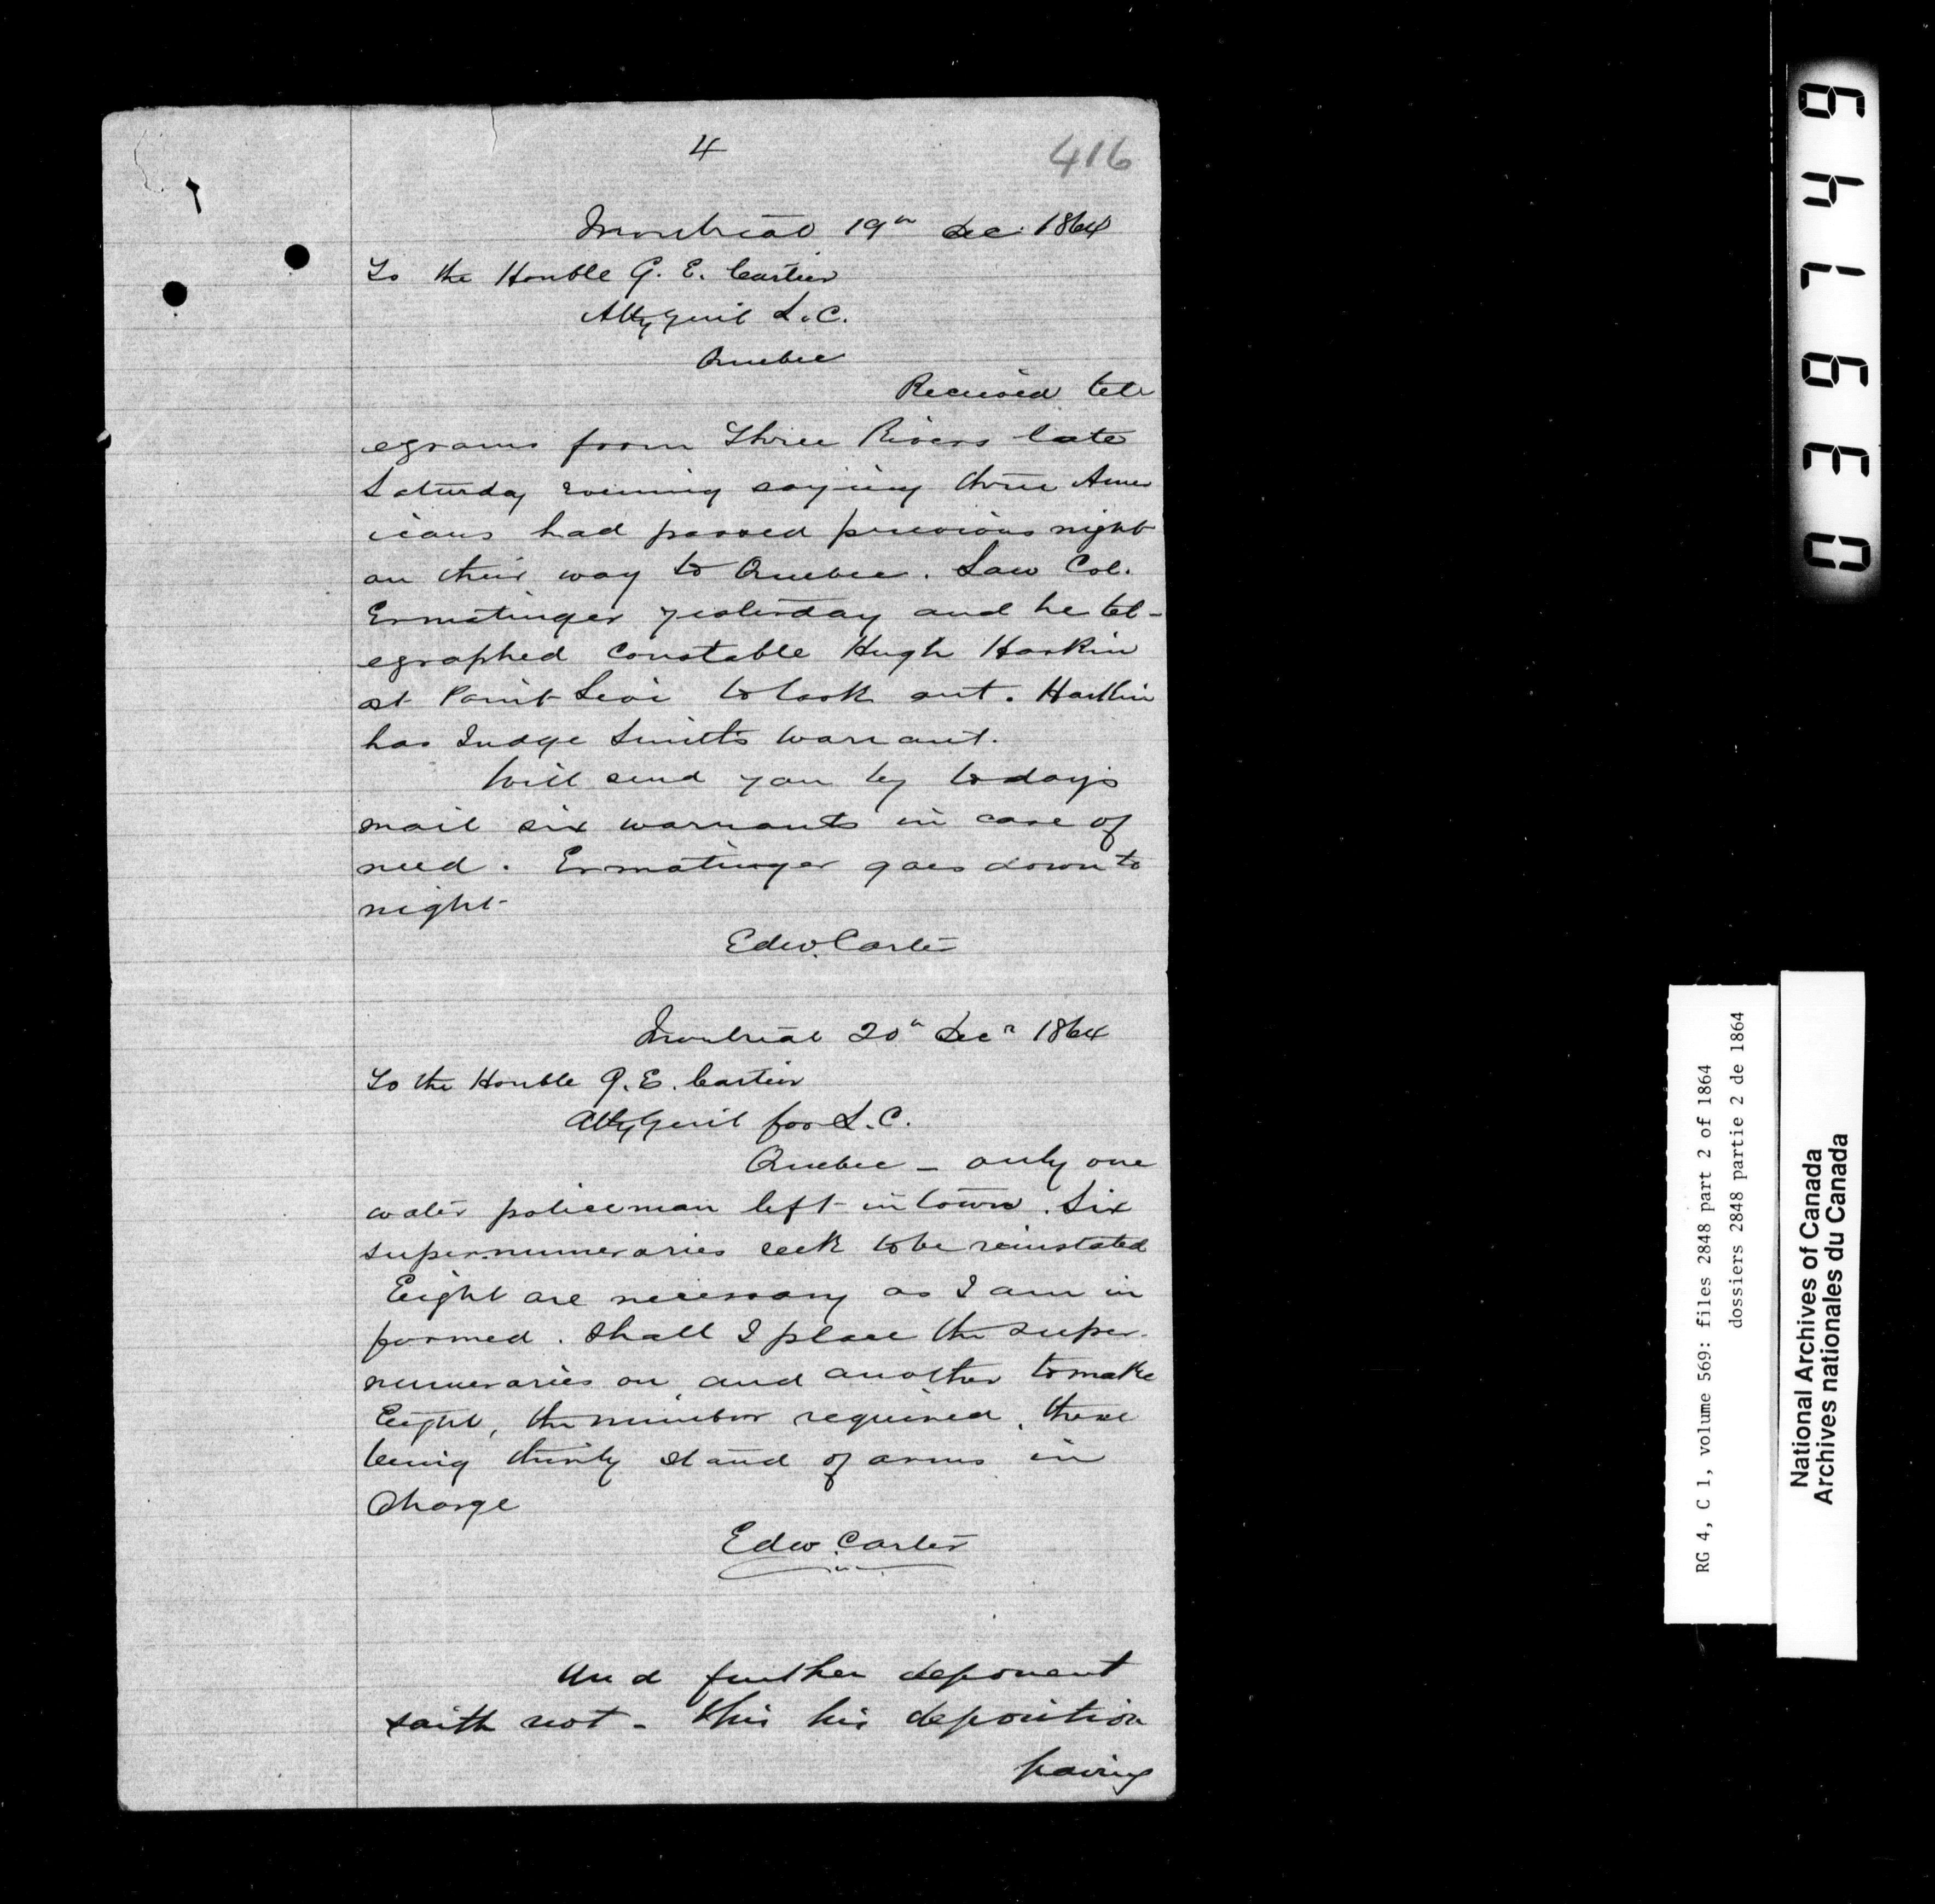 4
416
Montreal 19th Dec. 1864
To the Honble G. E. Cartier
Atty Genl L.C.
Quebec
Received tel
egrams from Three Rivers late
Saturday evening saying three Amer
icans had passed previous night
on their way to Quebec. Saw Col.
Ermatinger yesterday and he tel-
egraphed Constable Hugh Harkin
at Point Levi to look out. Harkin
has Judge Smith's warrant.
Will send you by today's
mail six warrants in case of
need. Ermatinger goes down to
night
Edw. Carter
Montreal 20th Decr 1864
To the Honble G. E. Cartier
Atty Genl for L.C.
Quebec - only one
water policeman left in town. Six
supernumeraries seek to be reinstated
Eight are necessary as I am in
formed. Shall I place the super-
numeraries on, and another to make
Eight, the number required, there
being thirty stand of arms in
Charge
Edw. Carter
And further deponent
saith not - this his deposition
having
034149
RG 4, C 1, volume 569: files 2848 part 2 of 1864
dossiers 2848 partie 2 de 1864
National Archives of Canada
Archives nationales du Canada